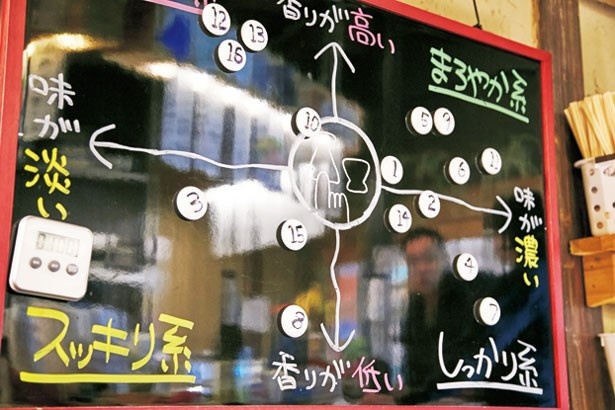 香りが高い
⑫
⑬
⑯
まろやか系
味が淡い
⑩
⑤
⑨
①
⑥
③
②
⑭
味が濃い
⑮
④
⑧
⑦
スッキリ系
香りが低い
しっかり系